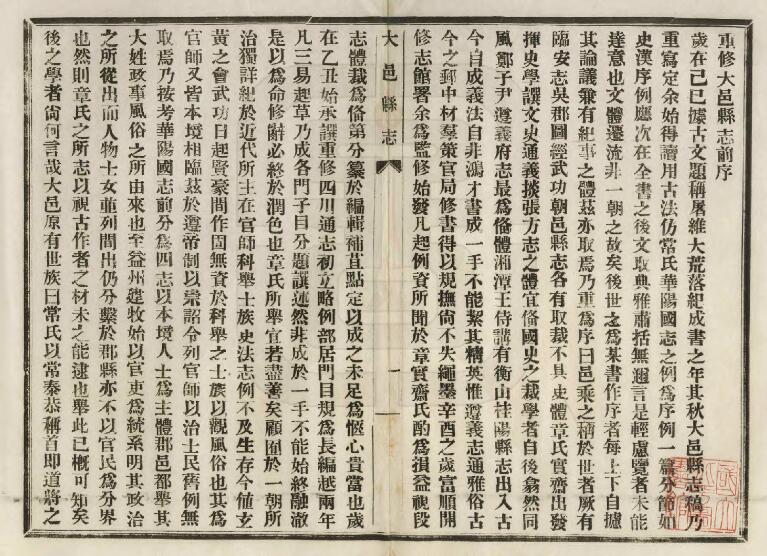 重修大邑縣志前序
歲在己巳據古文題稱屠維大荒落紀成書之年其秋大邑縣志稿乃
重寫定余始得讀用古法仿常氏華陽國志之例爲序例一篇分節如
史漢序例應次在全書之後文取典雅肅括無邇言是輕慮覽者未能
達意也文體遷流非一朝之故矣後世之爲某書作序者每上下自據
其論議兼有紀事之體茲亦取焉乃重爲序曰邑乘之稱於世者厥有
臨安志吳郡圖經武功朝邑縣志各有取裁不具史體章氏實齋出發
揮史學譔文史通義掞張方志之體宜備國史之裁學者自後翕然同
風鄭子尹遵義府志最爲備體湘潭王侍講有衡山桂陽縣志出入古
今自成義法自非鴻才書成一手不能絜其精英惟遵義志通雅俗古
今之郵中材羣策官局修書得以規撫尙不失繩墨辛酉之歲富順開
修志館署余爲監修始發凡起例資所聞於章實齋氏酌爲損益視段
大邑縣志
一
志體裁爲備第分纂於編輯補苴點定以成之未足爲愜心貴當也歲
在乙丑始承譔重修四川通志初立略例部居門目規爲長編越兩年
凡三易起草乃成各門子目分題譔述然非成於一手不能始終融澈
是以爲命修辭必終於潤色也章氏所舉宜若盡善矣顧囿於一朝所
治獨詳紀於近代所主在官師科舉士族史法志例不及生存今値玄
黃之會武功日起賢豪間作固無資於科舉之士族以觀風俗也其爲
官師又皆本境相臨茲於遵帝制以崇詔令列官師以治士民舊例無
取焉乃按考華陽國志前分爲四志以本境人士爲主體郡邑都舉其
大姓政事風俗之所由來也至益州建牧始以官吏爲統系明其政治
之所從出而人物士女並列間出仍分繫於郡縣亦不以官民爲分界
也然則章氏之所志以視古作者之材未之能逮也舉此已槪可知矣
後之學者尙何言哉大邑原有世族曰常氏以常泰恭稱首即道將之